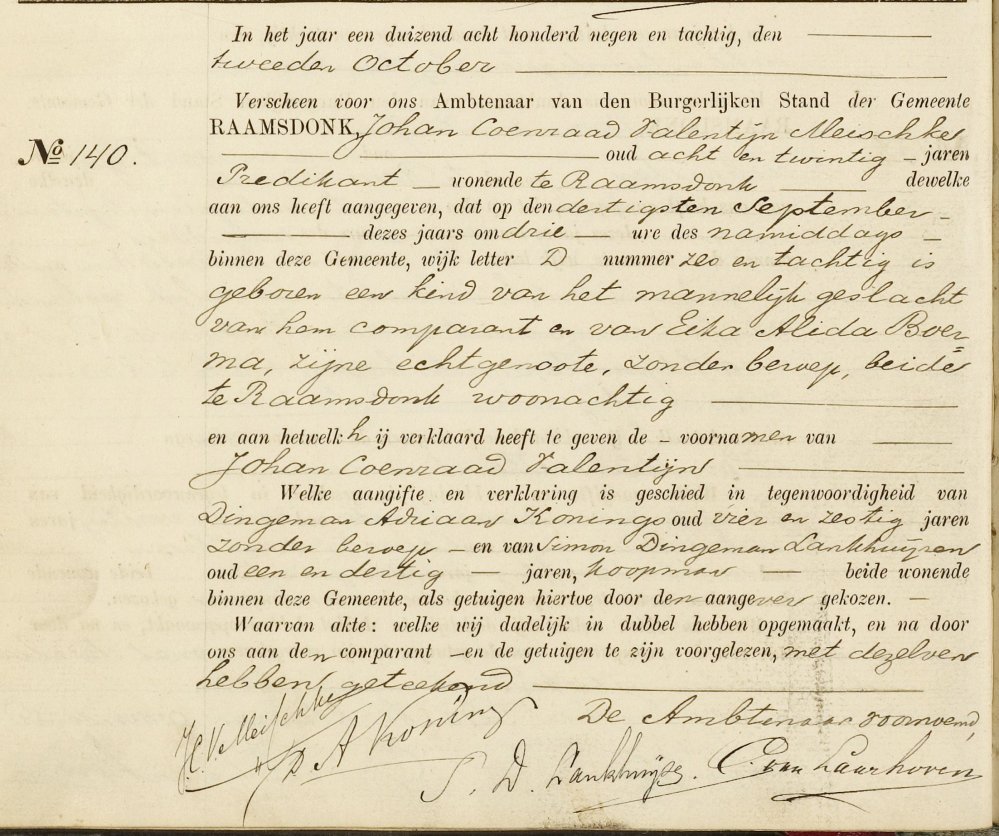 In het jaar een duizend acht honderd negen en tachtig, den
tweeden October
Verscheen voor ons Ambtenaar van den Burgerlijken Stand der Gemeente
RAAMSDONK, Johan Coenraad Valentijn Meischke
No 140.
oud acht en twintig jaren
Predikant wonende te Raamsdonk dewelke
aan ons heeft aangegeven, dat op den dertigsten September
dezes jaars om drie ure des namiddags
binnen deze Gemeente, wijk letter D nummer zes en tachtig is
geboren een kind van het mannelijk geslacht
van hem comparant en van Eika Alida Boer=
ma, zijne echtgenoote, zonder beroep, beide
te Raamsdonk woonachtig
en aan hetwelk hij verklaard heeft te geven de voornamen van
Johan Coenraad Valentijn
Welke aangifte en verklaring is geschied in tegenwoordigheid van
Dingeman Adriaan Konings oud vier en zestig jaren
zonder beroep en van Simon Dingeman Lankhuijzen
oud een en dertig jaren, koopman beide wonende
binnen deze Gemeente, als getuigen hiertoe door den aangever gekozen.
Waarvan akte: welke wij dadelijk in dubbel hebben opgemaakt, en na door
ons aan den comparant en de getuigen te zijn voorgelezen, met dezelven
hebben geteekend
De Ambtenaar voornoemd,
J.C.V. Meischke
D A Konings
S. D. Lankhuijzen. C. van Laarhoven